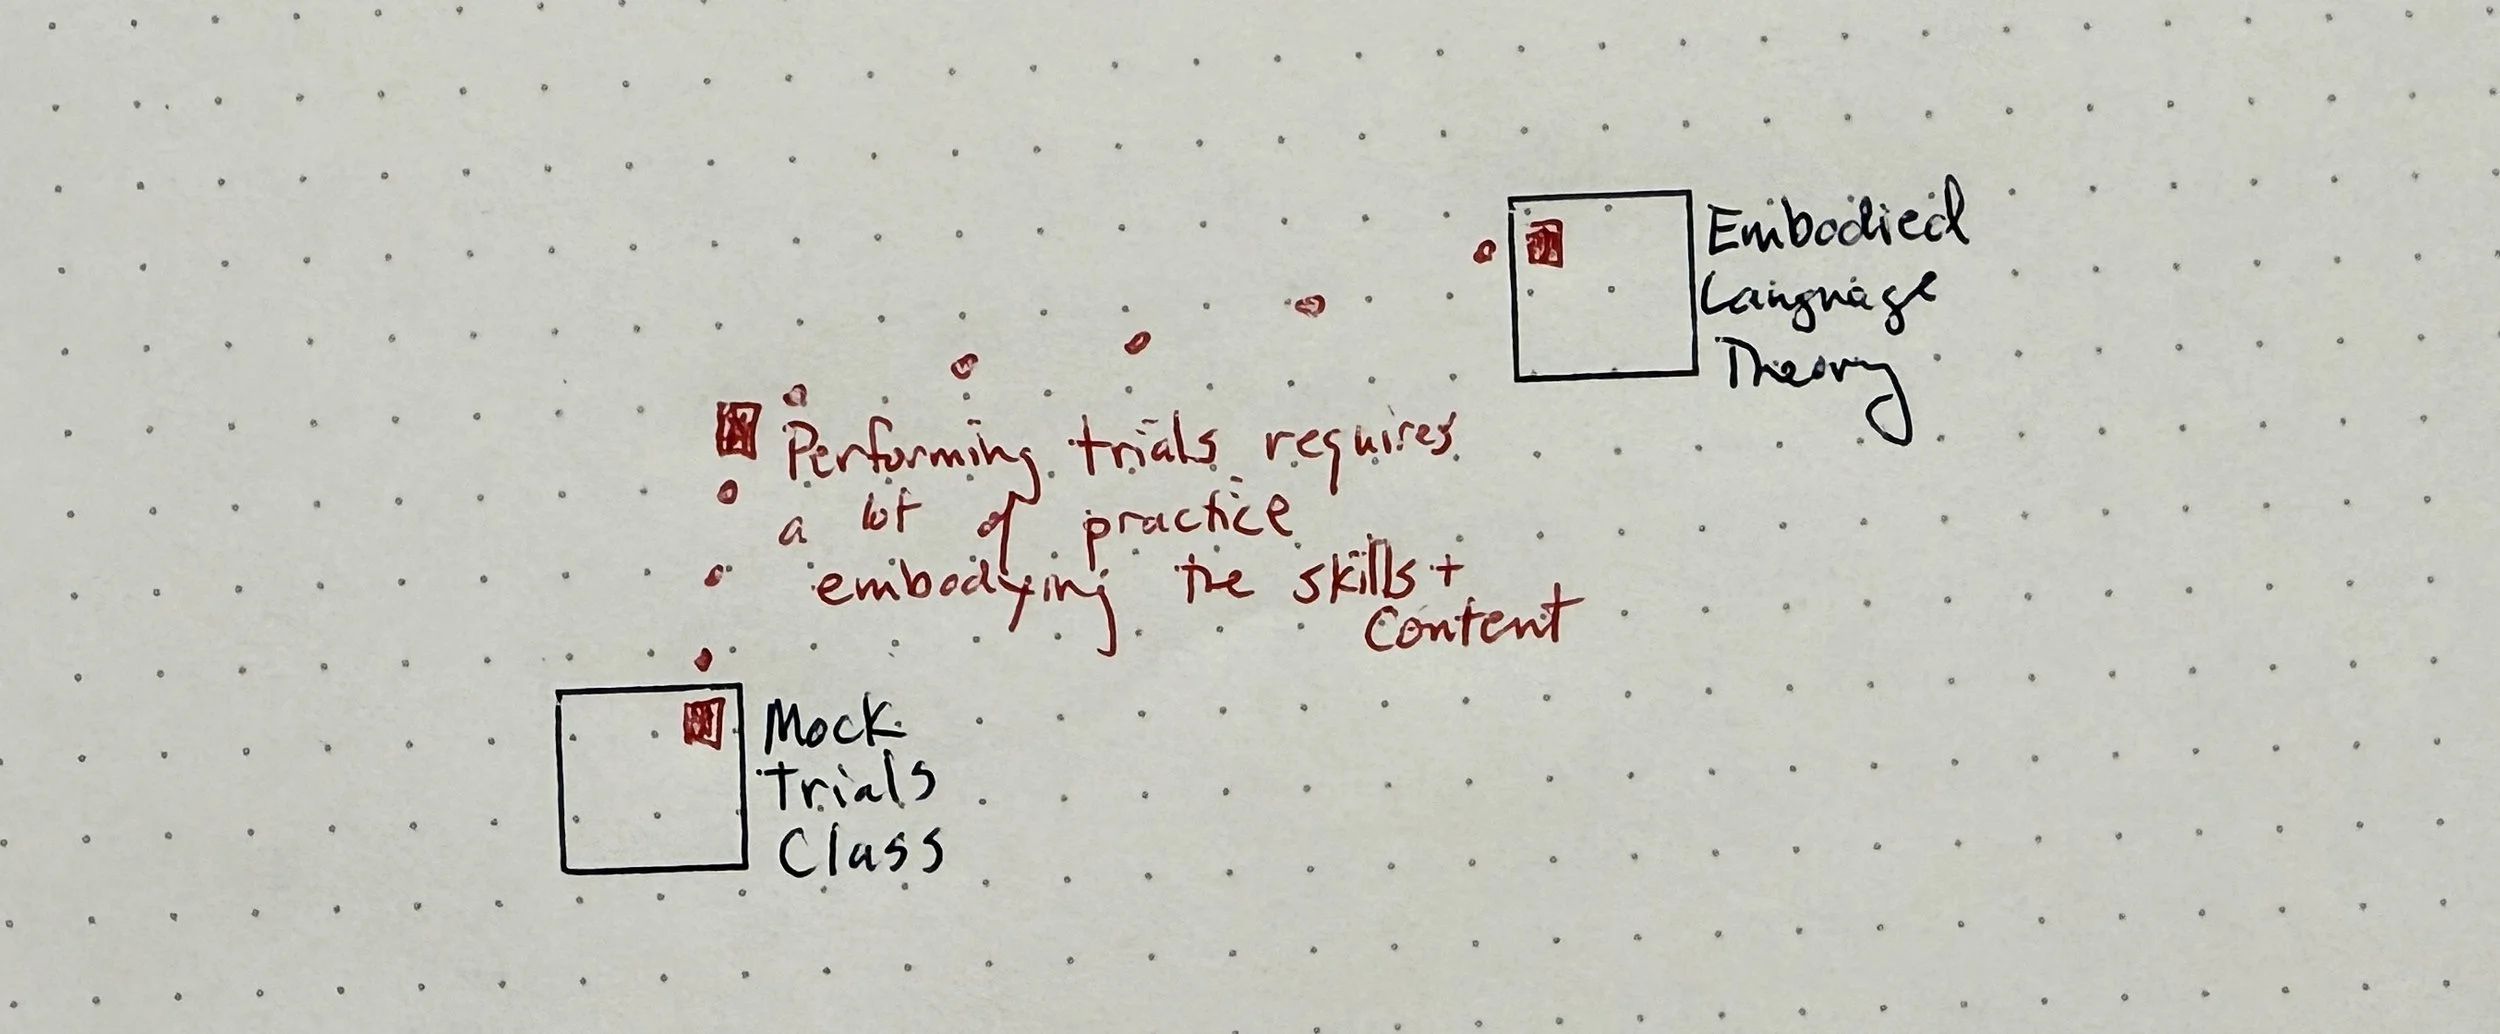 Embodied
Language
Theory
Performing trials requires
a lot of practice
embodying the skills +
content
Mock
Trials
Class